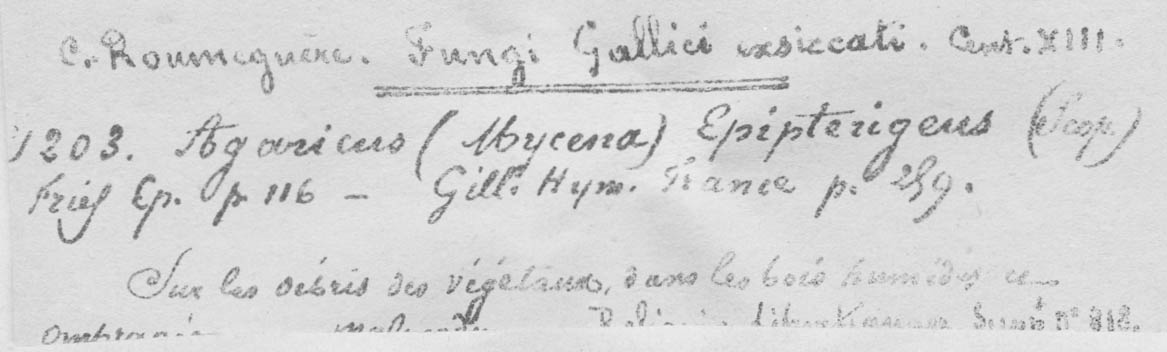 C. Roumeguère. Fungi Gallici exsiccati. Cent. XIII.
1203. Agaricus (Mycena) Epipterigeus (Scop.)
Fries Ep. p. 116 — Gill. Hym. France p. 259.
Sur les débris des végétaux, dans les bois humides et
nº 818.